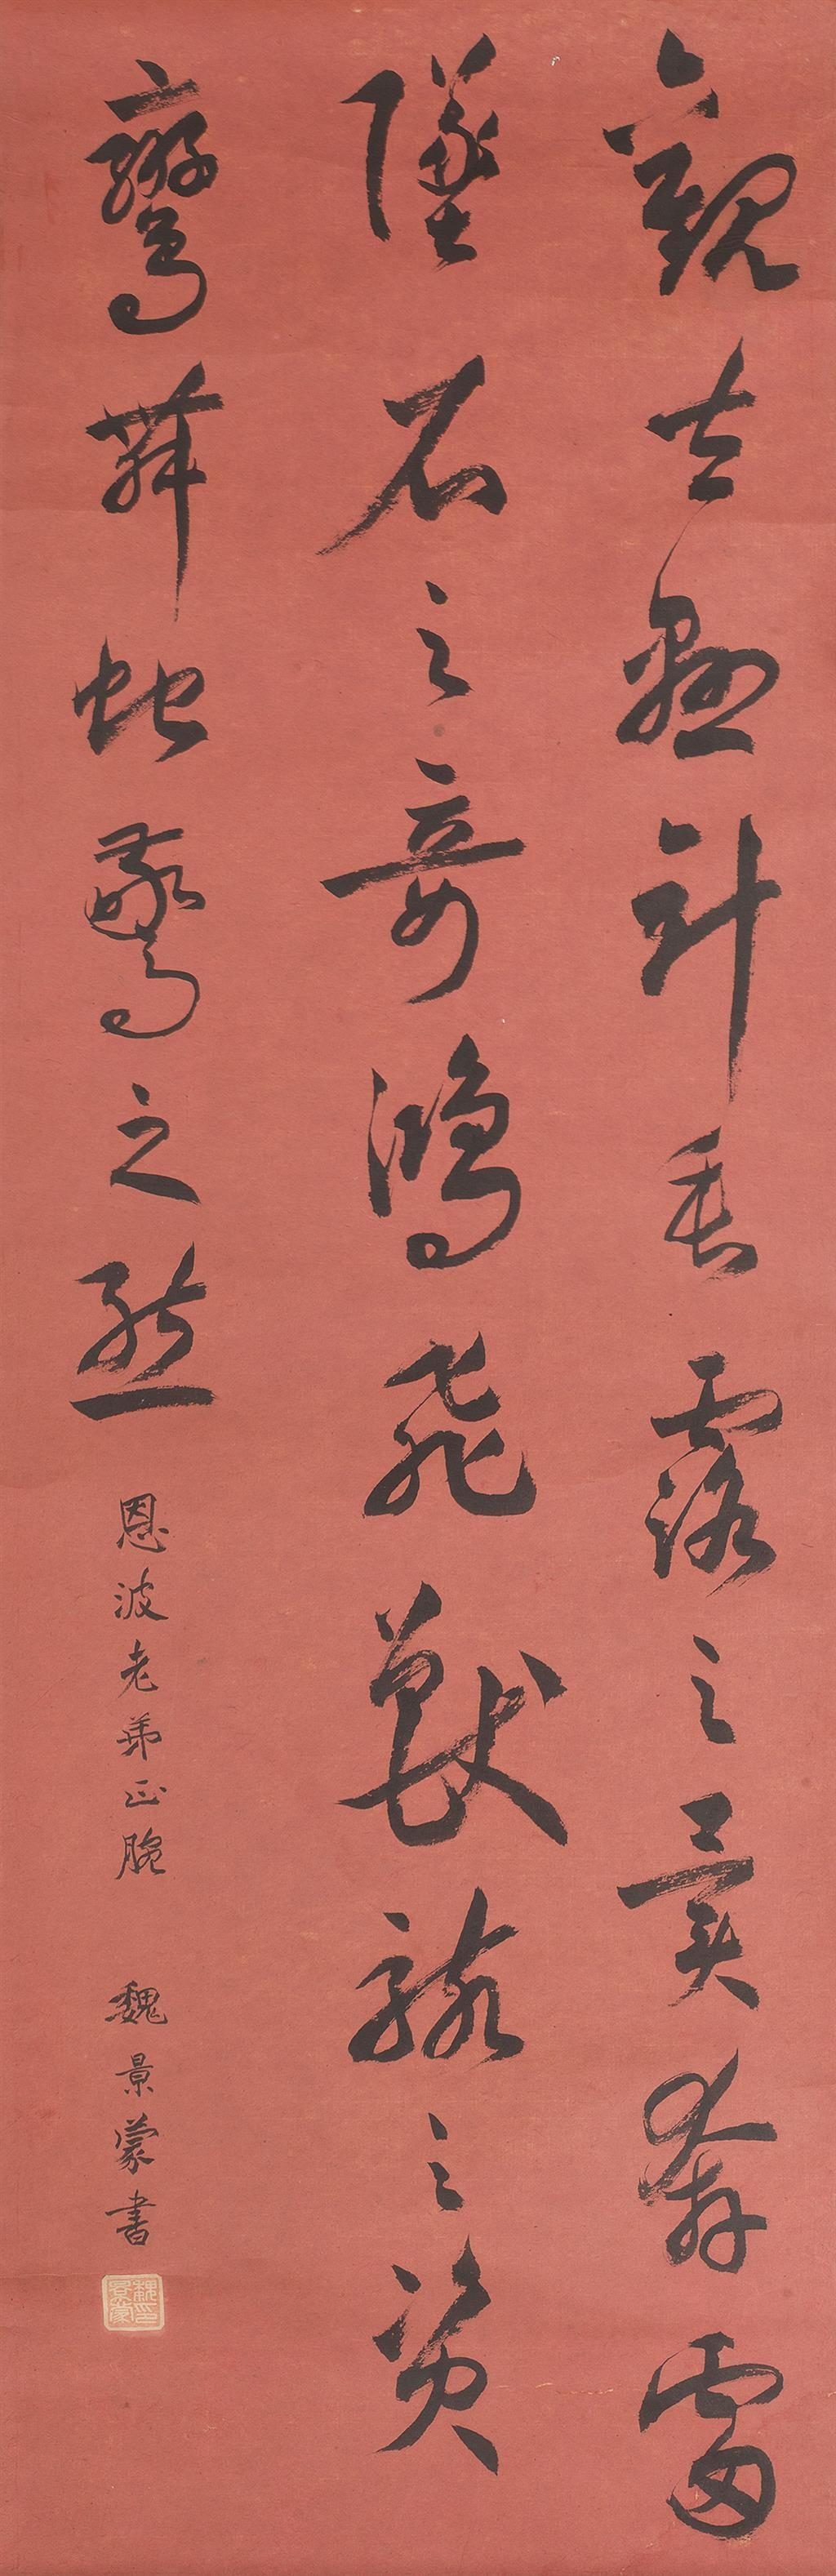 觀夫懸針垂露之異奔雷
墜石之奇鴻飛獸駭之資
鸞舞蛇驚之態 恩波老弟正腕 魏景蒙書
魏景蒙印